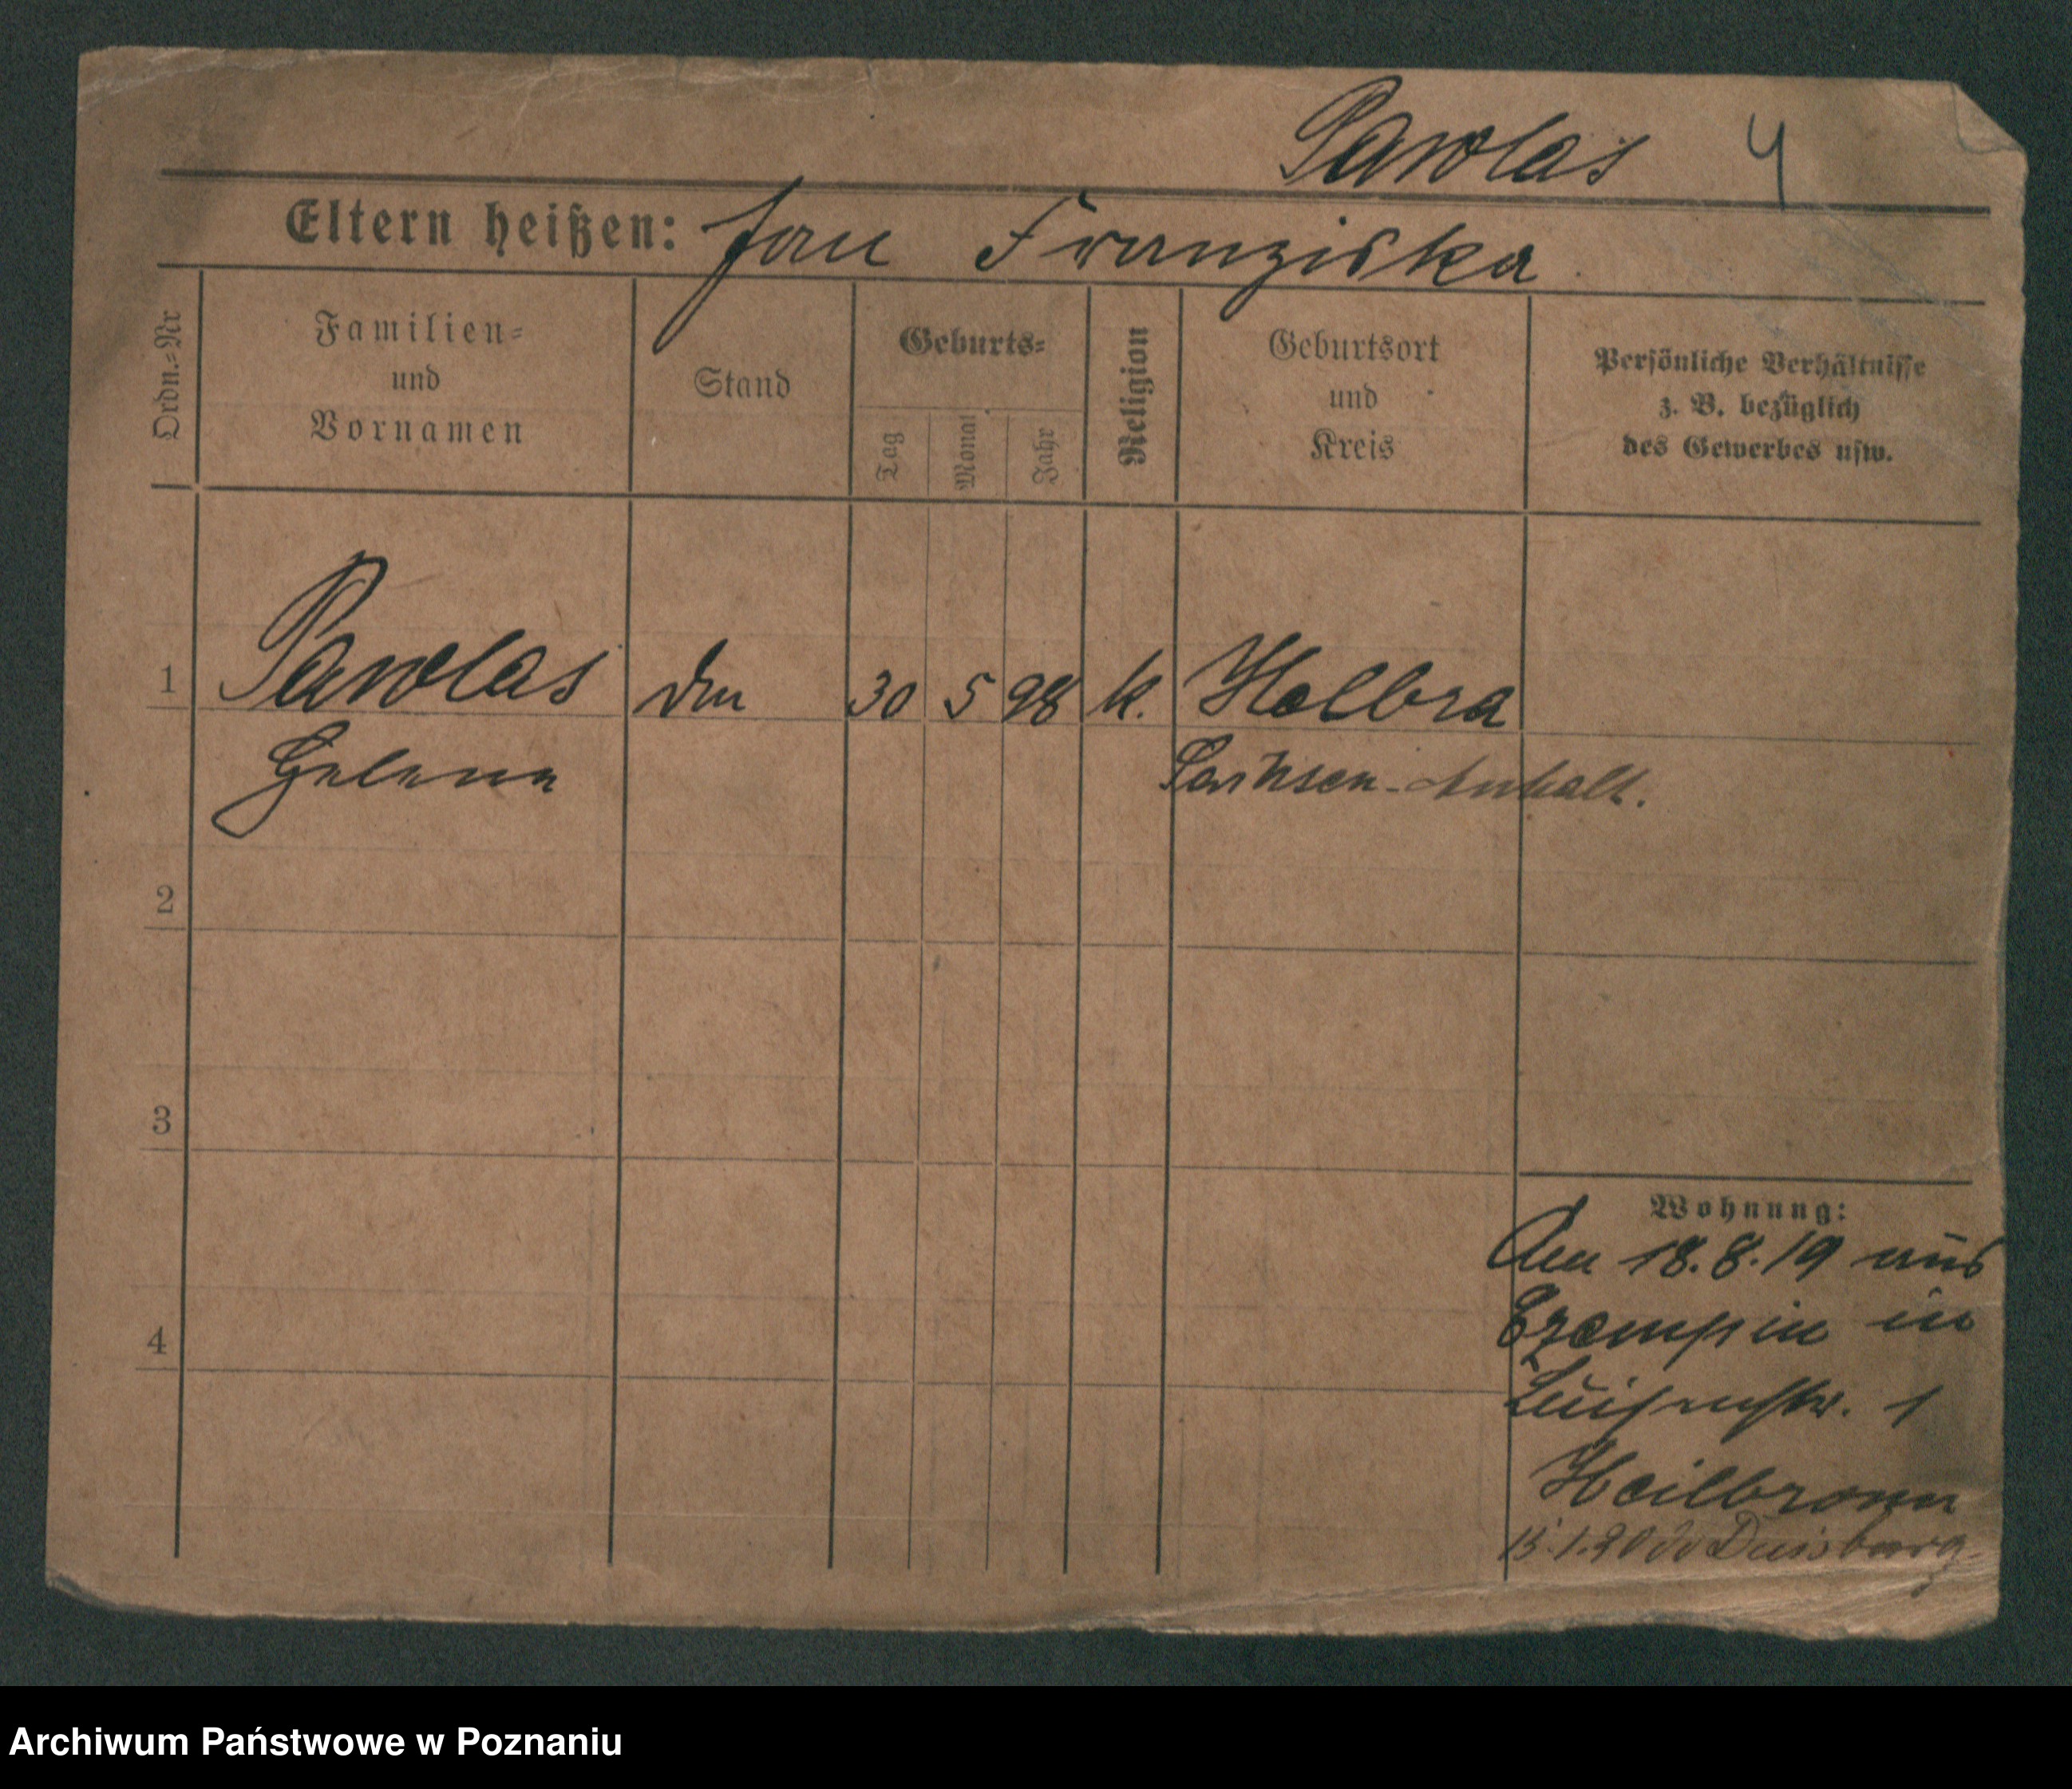 Pawlas 4
Eltern heißen: Jan Franziska
Ordn.=Nr
Familien=
und
Vornamen
Stand
Geburts=
Tag
Monat
Jahr
Religion
Geburtsort
und
Kreis
Persönliche Verhältnisse
z. B. bezüglich
des Gewerbes usw.
1 Pawlas 30 5 98 k. Helbra
Helena Sachsen-Anhalt.
2
3
4
Wohnung:
Am 18.8.19 aus
Czempin in
Luisenstr. 1
Heilbronn
Duisburg
Archiwum Państwowe w Poznaniu